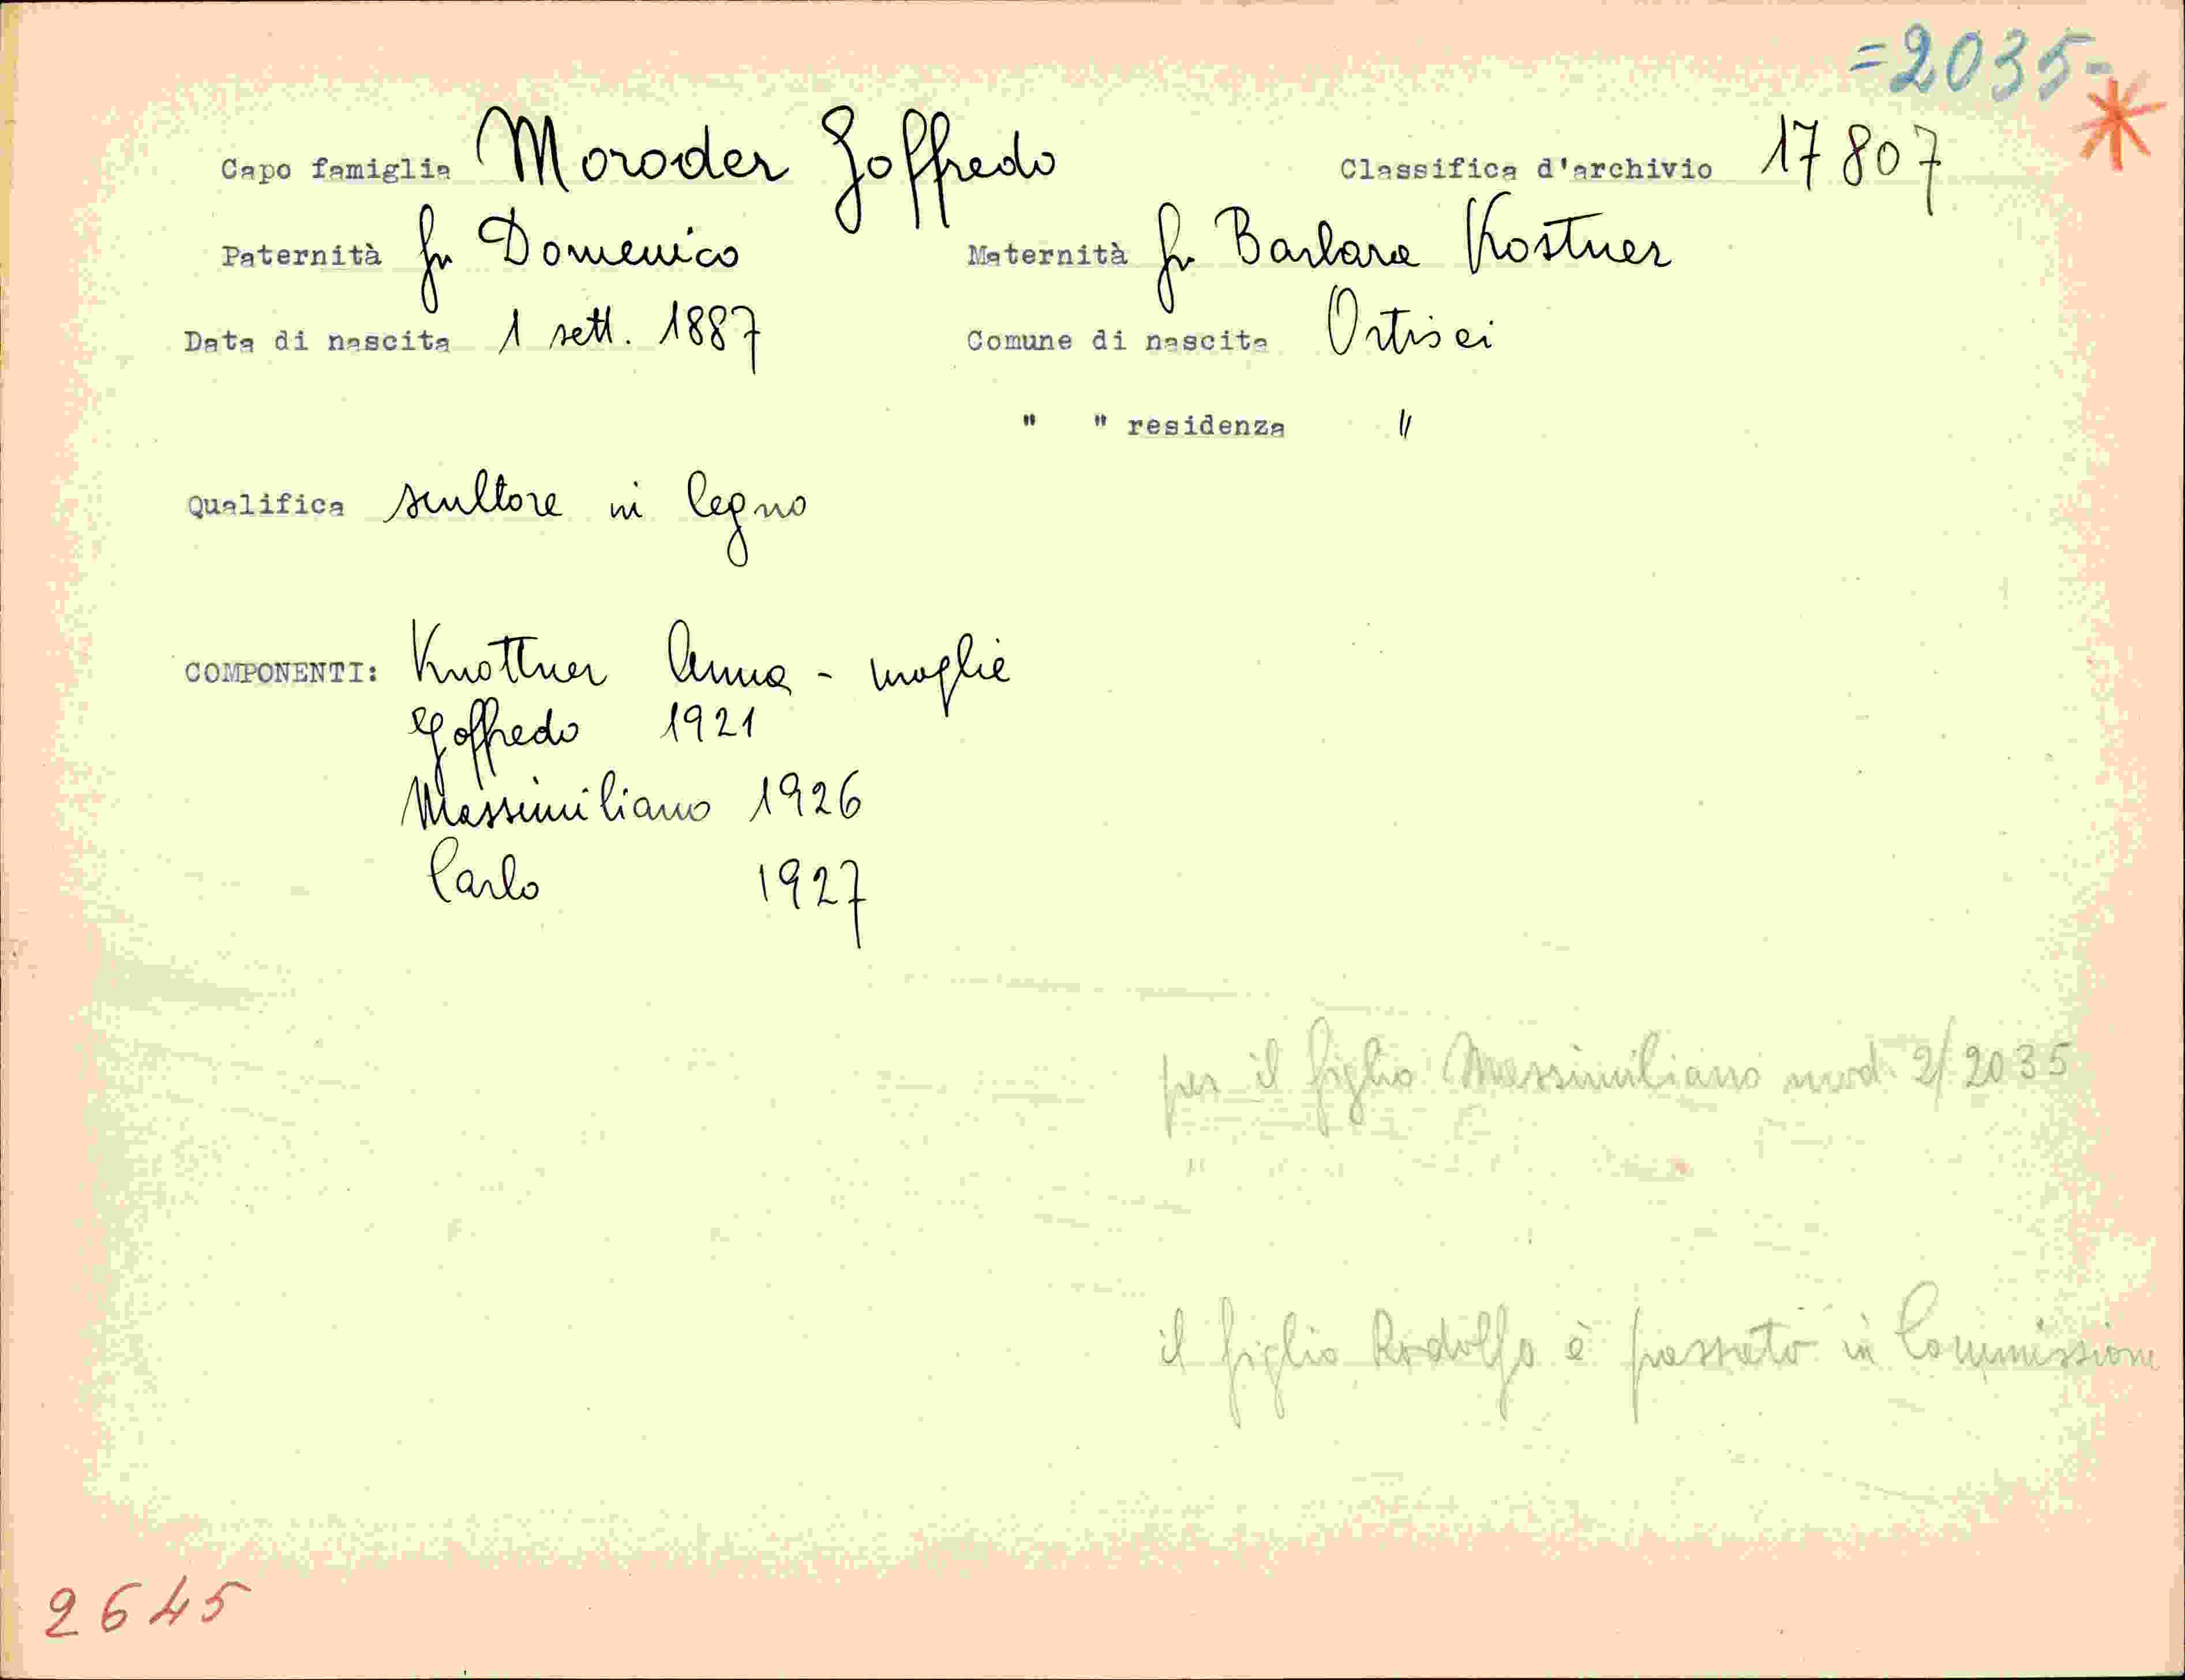 =2035-
Capo famiglia Moroder Goffredo Classifica d'archivio 17807
Paternità fu Domenico Maternità fu Barbara Kostner
Data di nascita 1 sett. 1887 Comune di nascita Ortisei
" " residenza "
Qualifica scultore in legno
COMPONENTI: Knottner Anna - moglie
Goffredo 1921
Massimiliano 1926
Carlo 1927
per il figlio Massimiliano mod. 2/2035
"
il figlio Rodolfo è passato in Commissione
2645